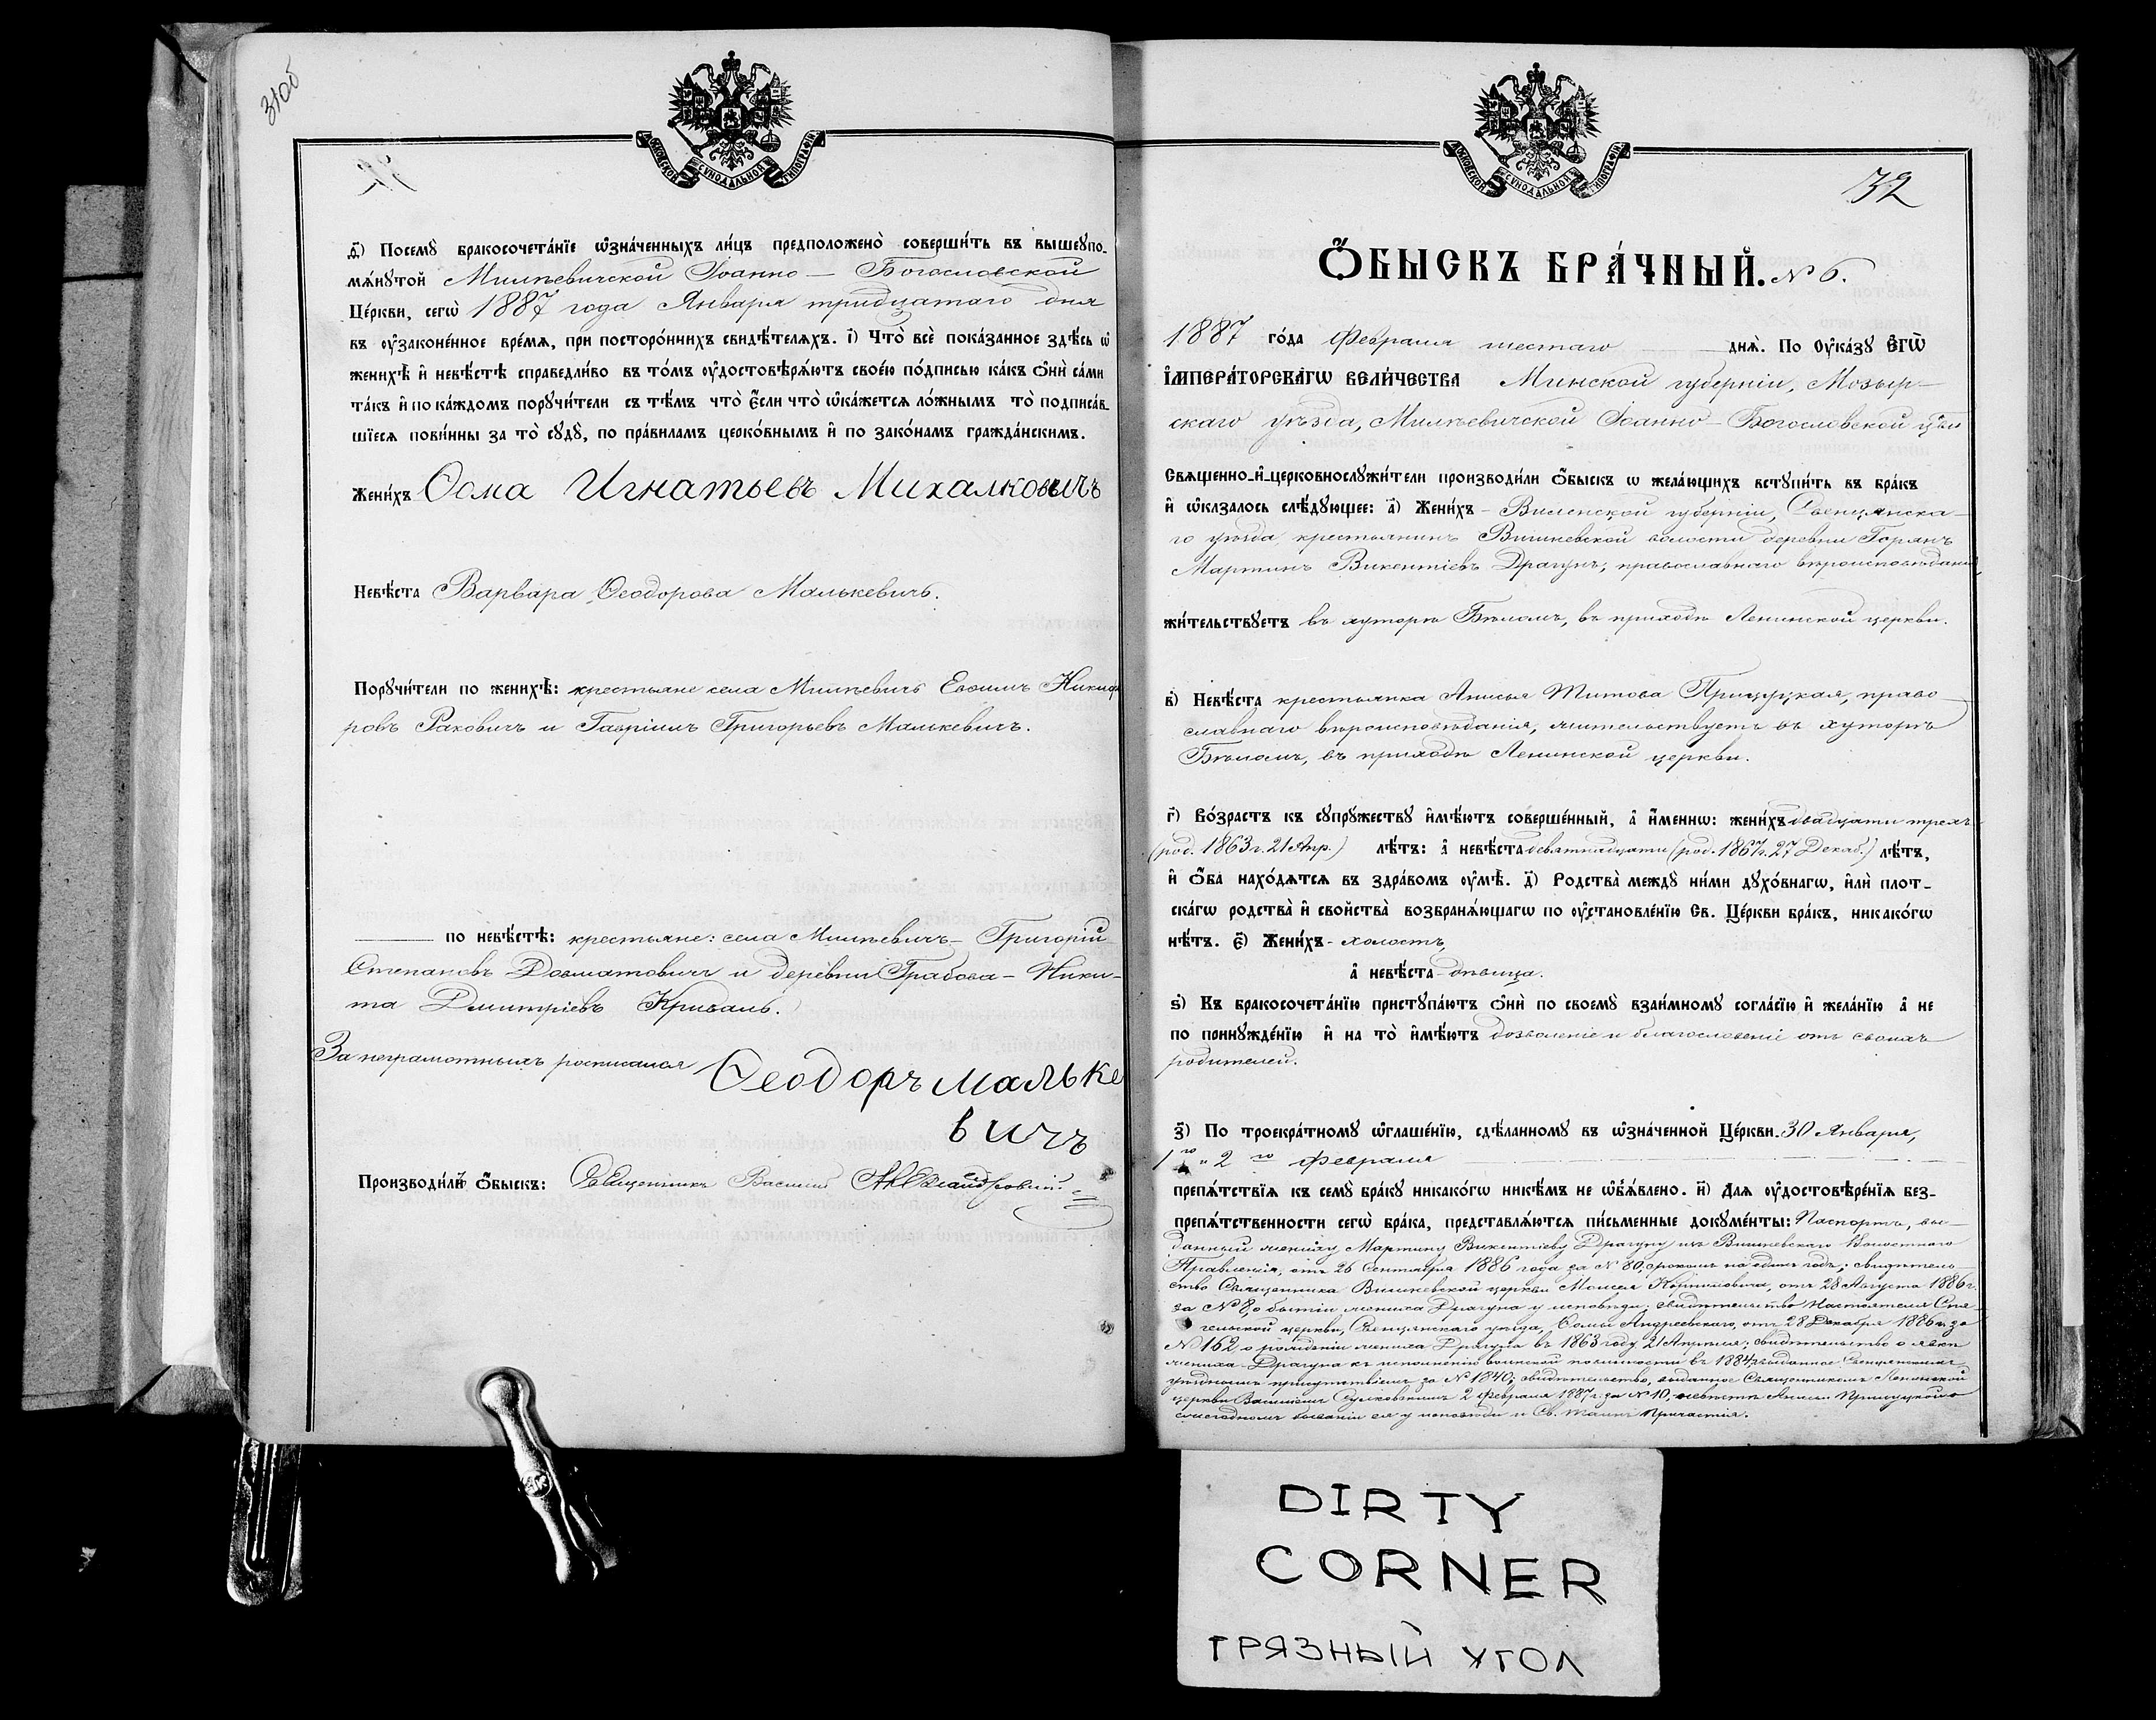 31об
МОСКОВСКОЙ СѴНОДАЛЬНОЙ ТИПОГРАФІИ
ѳ҃) Посемꙋ̀ бракосочета́нїе ѡ҆зна́ченныхъ ли́цъ предположено̀ соверши́ть въ вышеꙋпо-
мѧ́нꙋтой Милѣвичской Іоанно – Богословской
Це́ркви, сегѡ̀ 1887 года Января тридцатаго дня
въ ᲂу҆законе́нное вре́мѧ, при посторо́ннихъ свидѣ́телѧхъ. і҃) Что̀ всѐ пока́занное здѣ́сь ѡ҆
женихѣ̀ и҆ невѣ́стѣ справедли́во въ то́мъ ᲂу҆достовѣрѧ́ютъ свое́ю по́дписью ка́къ ѻ҆нѝ са́ми
та́къ и҆ по ка́ждомъ порꙋчи́тели съ тѣ́мъ что̀ є҆́сли что̀ ѡ҆ка́жетсѧ ло́жнымъ то̀ подписа́в-
шїесѧ пови́нны за то̀ сꙋдꙋ̀, по пра́виламъ церко́внымъ и҆ по зако́намъ гражда́нскимъ.
Жени́хъ Ѳома Игнатьевъ Михалковичъ
Невѣ́ста Варвара Ѳеодорова Малькевичъ.
Порꙋчи́тели по женихѣ̀: крестьяне села Милѣвичъ Евѳимъ Никифо
ровъ Раковичъ и Гавріилъ Григорьевъ Малькевичъ.
по невѣ́стѣ: крестьяне: села Милѣвичъ – Григорій
Степановъ Довматовичъ и деревни Грабова – Ники-
та Дмитріевъ Криваль.
За неграмотныхъ росписался Ѳеодоръ Мальке
вичъ
Производи́лъ ѻ҆́быскъ: Священникъ Василій
МОСКОВСКОЙ СѴНОДАЛЬНОЙ ТИПОГРАФІИ
32
Ѻ҆́БЫСКЪ БРА́ЧНЫЙ. № 6.
1887 го́да Февраля шестаго днѧ̀. По ᲂу҆ка́зꙋ Є҆ГѠ̀
І҆МПЕРА́ТОРСКАГѠ ВЕЛИ́ЧЕСТВА Минской губерніи, Мозыр-
скаго уѣзда, Милѣвичской Іоанно – Богословской цкви
Свѧщенно-и҆-церковнослꙋжи́тели производи́ли ѻ҆́быскъ ѡ жела́ющихъ встꙋпи́ть въ бра́къ
и҆ ѡ҆казалось слѣ́дꙋющее: а҃) Жени́хъ – Виленской губерніи, Свенцянска-
го уѣзда, крестьянинъ Вишневской волости деревни Горянъ
Мартинъ Викентіевъ Драгунъ; православнаго вѣроисповѣданія,
жи́тельствꙋетъ въ хуторѣ Бѣломъ, въ приходѣ Ленинской церкви.
в҃) Невѣ́ста крестьянка Анисья Титова Прицуцкая, право-
славнаго вѣроисповѣданія, жительствуетъ въ хуторѣ
Бѣломъ, въ приходѣ Ленинской церкви.
г҃) Во́зрастъ къ сꙋпрꙋ́жествꙋ и҆мѣ́ютъ соверше́нный, а҆ и҆́меннѡ: жени́хъ двадцати трехъ
(род. 1863 г. 21 Апр.) лѣ́тъ: а҆ невѣ́ста девятнадцати (род. 1867 г. 27 Декаб.) лѣ́тъ,
и҆ ѻ҆́ба нахо́дѧтсѧ въ здра́вомъ ᲂу҆мѣ̀. д҃) Родства̀ междꙋ̀ ни́ми дꙋхо́внагѡ, и҆лѝ плот-
ска́гѡ родства̀ и҆ сво́йства̀ возбранѧ́ющагѡ по ᲂу҆становле́нїю Св. Це́ркви бра́къ, никако́гѡ
нѣ́тъ. є҃) Жени́хъ – холостъ,
а҆ невѣ́ста – дѣвица.
ѕ҃) Къ бракосочета́нїю пристꙋпа́ютъ ѻ҆нѝ по своемꙋ̀ взаи́мномꙋ согла́сїю и҆ жела́нїю а҆ не
по принꙋжде́нїю и҆ на то̀ и҆мѣ́ютъ дозволеніе и благословеніе отъ своихъ
родителей.
з҃) По троекра́тномꙋ ѡ҆глаше́нїю, сдѣ́ланномꙋ въ ѡ҆зна́ченной Це́ркви 30 Января,
1го и 2го Февраля
препѧ́тствїѧ къ семꙋ̀ бра́кꙋ никако́гѡ никѣ́мъ не ѡ҆б̾ѧ́влено. и҃) Длѧ ᲂу҆достовѣре́нїѧ без-
препѧ́тственности сегѡ̀ бра́ка, представлѧ́ютсѧ пи́сьменные докꙋме́нты: Паспортъ, вы-
данный жениху Мартину Викентіеву Драгуну изъ Вишневскаго Волостнаго
Правленія, отъ 26 Сентября 1886 года за № 80, срокомъ на одинъ годъ; свидѣтель-
ство Священника Вишневской церкви Моисея отъ 28 Августа 1886 г.
за № 8, о бытіи жениха Драгуна у исповѣди; свидѣтельство Настоятеля Спя-
гельской церкви, Свенцянскаго уѣзда, Ѳомы Андреевскаго, отъ 28 Декабря 1886 г. за
№ 162 о рожденіи жениха Драгуна въ 1863 году 21 Апрѣля; свидѣтельство о явкѣ
жениха Драгуна къ исполненію воинской повинности въ 1884 г. выданное Свенцянскимъ
уѣзднымъ присутствіемъ за № 1840; свидѣтельство, выданное Священникомъ Ленинской
церкви Василіемъ 2 Февраля 1887 г. за № 10, невѣстѣ Анисьи Прицуцкой о
ежегодномъ бываніи ея у исповѣди и Св. Таинъ Причастія.
DIRTY
CORNER
ГРЯЗНЫЙ УГОЛ